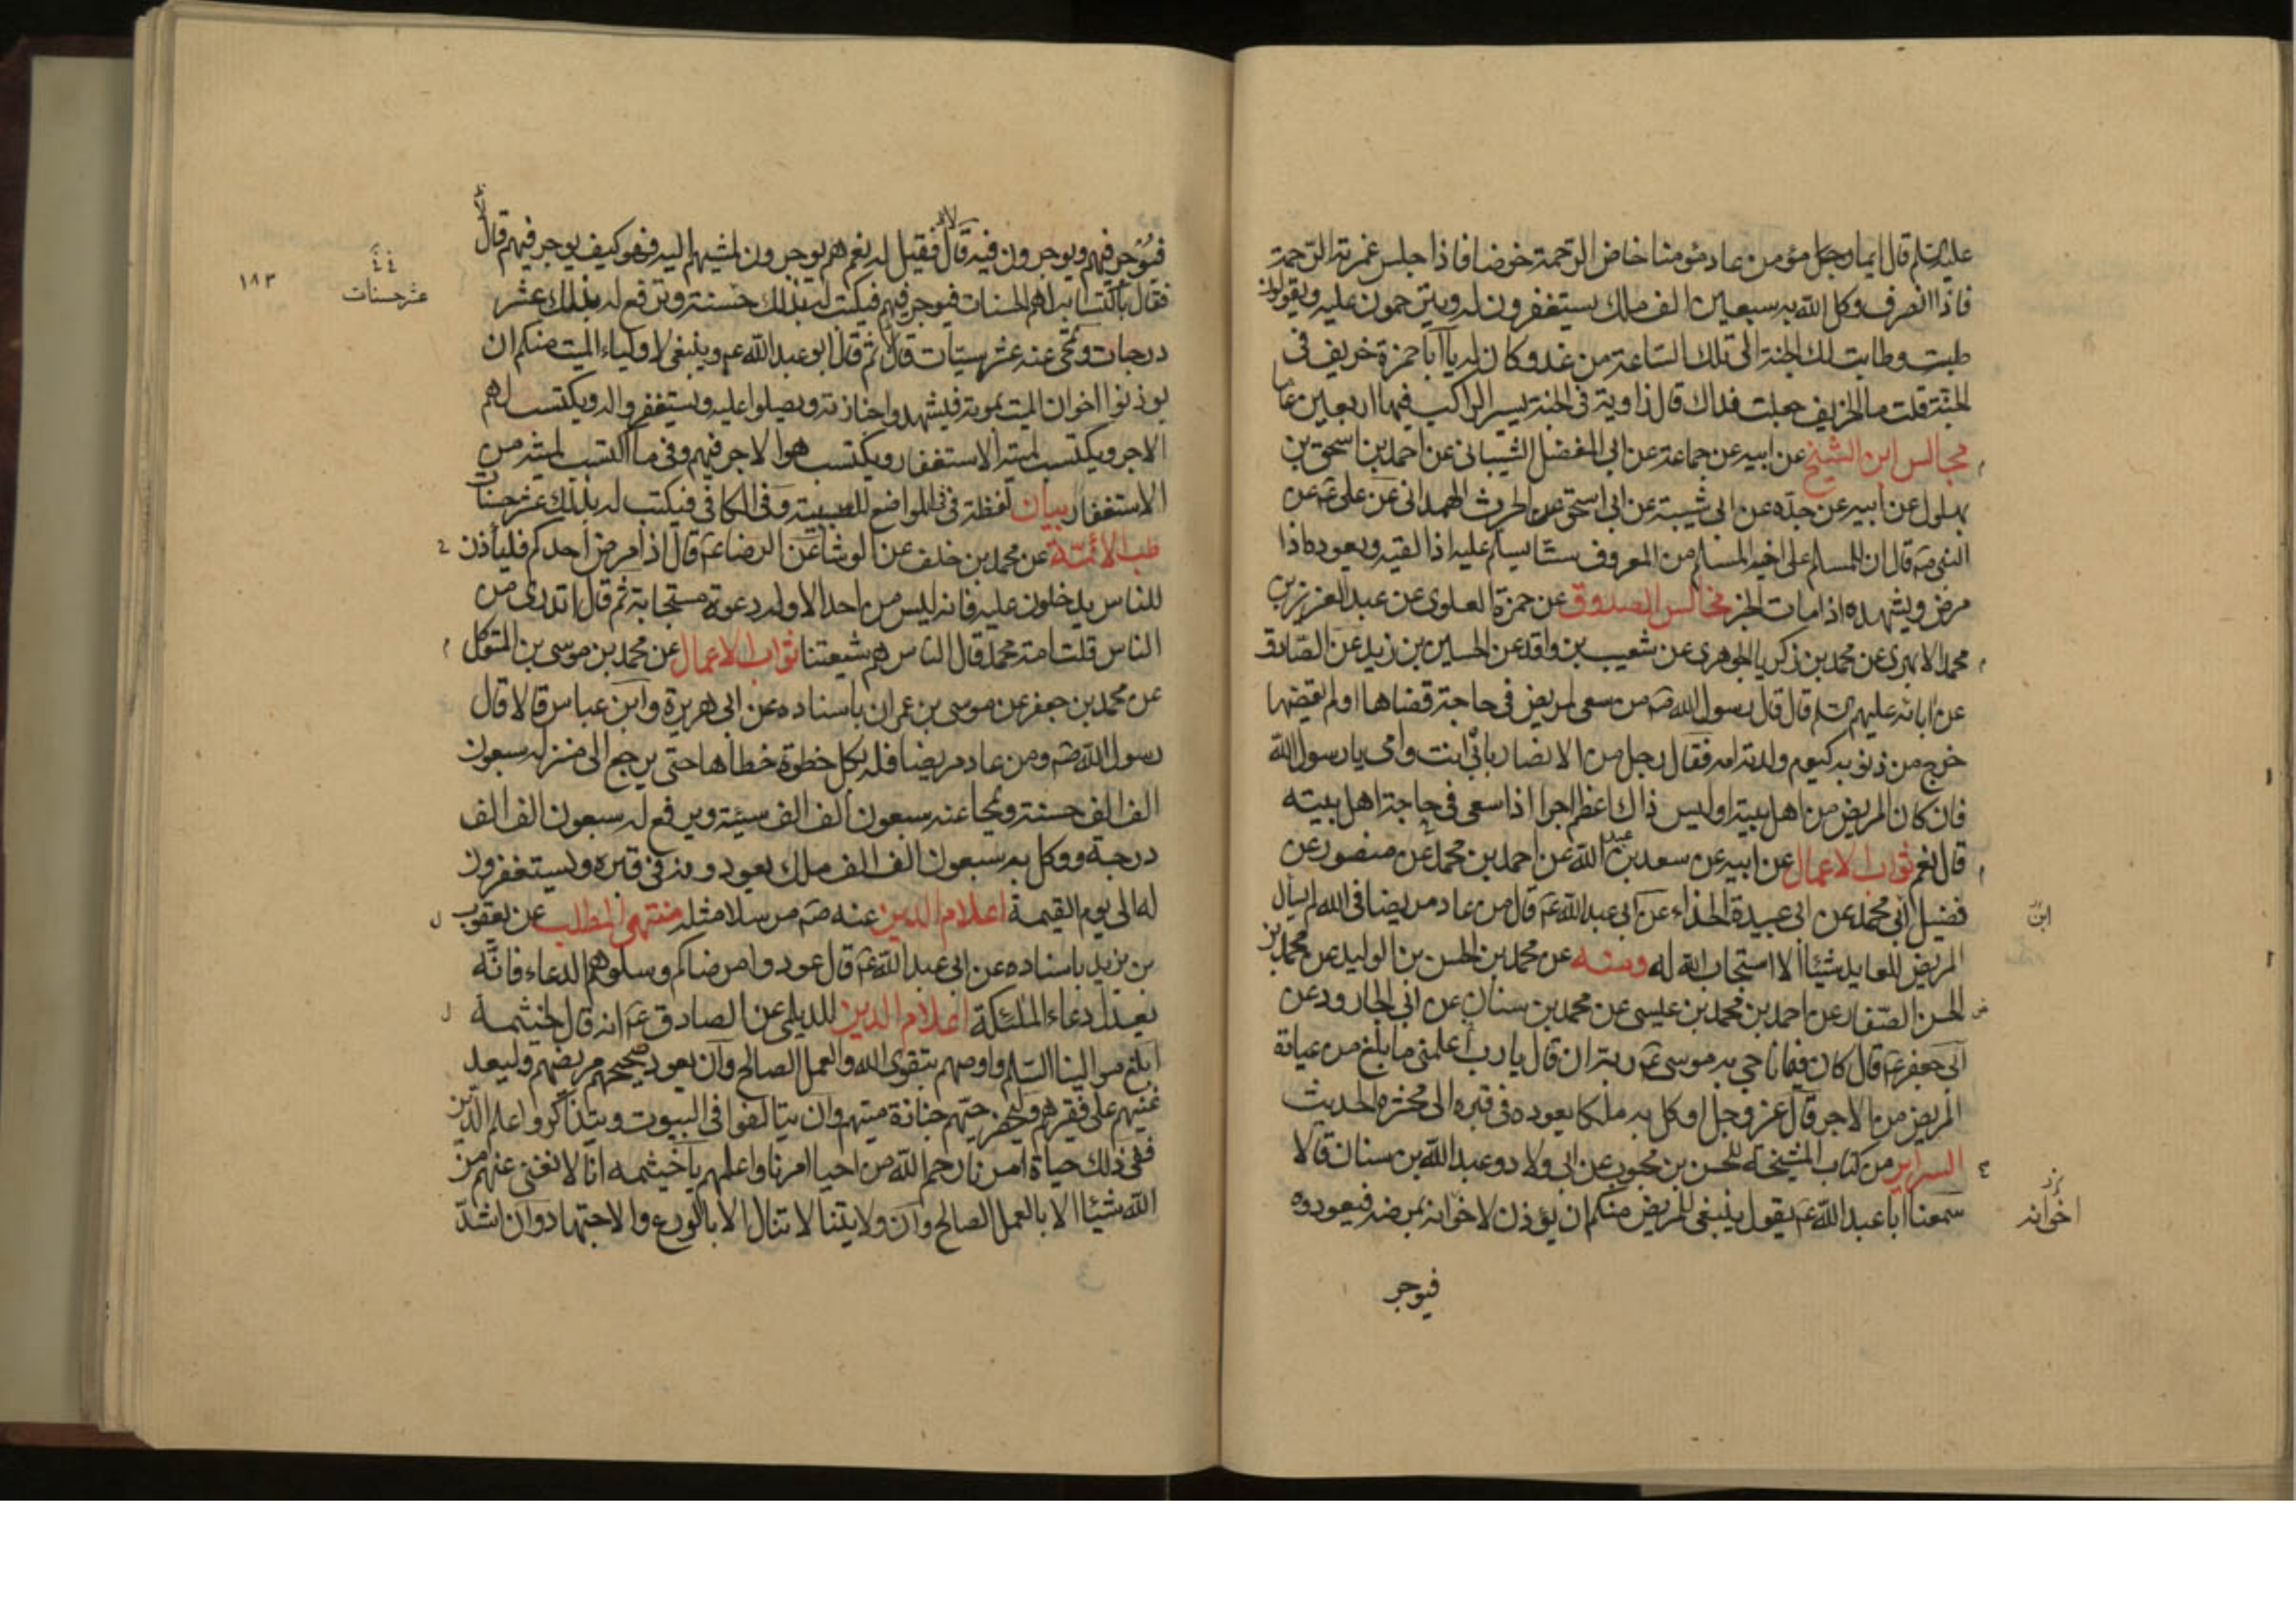 عليه السلم قال ايما رجل مؤمن عاد مؤمنا خاض الرحمة خوضا فاذا جلس غمرته الرحمة
فاذا انصرف وكل الله به سبعين الف ملك يستغفرون له ويترحمون عليه ويقولون
طبت وطابت لك الجنة الى تلك الساعة من غد وكان له يا ابا حمزة خريف في
الجنة قلت ما الخريف جعلت فداك قال زاوية في الجنة يسير الراكب فيها اربعين عاما
مجالس ابن الشيخ عن ابيه عن جماعة عن ابي المفضل الشيباني عن احمد بن اسحق بن
بهلول عن ابيه عن جده عن ابي شيبة عن ابي اسحق عن الحرث الهمداني عن علي عن
النبي ص قال ان للمسلم على اخيه المسلم من المعروف ستا يسلم عليه اذا لقيه ويعوده اذا
مرض ويشهده اذا مات الخبر مجالس الصدوق عن حمزة العلوي عن عبد العزيز بن
محمد الابهري عن محمد بن زكريا الجوهري عن شعيب بن واقد عن الحسين بن زيد عن الصادق
عن ابائه عليهم السلم قال قال رسول الله ص من سعى لمريض في حاجة قضاها او لم يقضها
خرج من ذنوبه كيوم ولدته امه فقال رجل من الانصار بابي انت وامي يا رسول الله
فان كان المريض من اهل بيته اوليس ذاك اعظم اجرا اذا سعى في حاجة اهل بيته
قال نعم ثواب الاعمال عن ابيه عن سعد بن عبد الله عن احمد بن محمد عن منصور عن
فضيل ابي محمد عن ابي عبيدة الحذاء عن ابي عبد الله ع قال من عاد مريضا في الله لم يسال
ابن
المريض للعايد شيئا الا استجاب الله له ومنه عن محمد بن الحسن بن الوليد عن محمد بن
الحسن الصفار عن احمد بن محمد بن عيسى عن محمد بن سنان عن ابي الجارود عن
ابي جعفر ع قال كان فيما ناجى به موسى ع ربه ان قال يا رب اعلمني ما بلغ من عيادة
المريض من الاجر قال عز وجل اوكل به ملكا يعوده في قبره الى محشره الحديث
السراير من كتاب المشيخة للحسن بن محبوب عن ابي ولاد وعبد الله بن سنان قالا
سمعنا ابا عبد الله ع يقول ينبغي للمريض منكم ان يؤذن لاخوانه بمرضه فيعودوه
اخوانه
فيوجر
فيؤجر فيهم ويوجرون فيه قال فقيل له نعم هم يوجرون لمشيهم اليه فهو كيف يوجر فيهم قال
فقال باكتسابه لهم الحسنات فيوجر فيهم فيكتب له بذلك حسنة وترفع له بذلك عشر
عشر حسنات
١٨٣
درجات وتمحى عنه عشر سيئات قال ثم قال ابو عبد الله ع وينبغي لاولياء الميت منكم ان
يوذنوا اخوان الميت بموته فيشهدوا جنازته ويصلوا عليه ويستغفروا له ويكتسب لهم
الاجر ويكتسب لميته الاستغفار ويكتسب هو الاجر فيهم وفي ما اكتسب لميته من
الاستغفار بيان لفظة في في المواضع للسببية وفي الكافي فيكتب له بذلك عشر حسنات
طب الائمة عن محمد بن خلف عن الوشا عن الرضا ع قال اذا مرض احدكم فليأذن
للناس يدخلون عليه فانه ليس من احد الا وله دعوة مستجابة ثم قال اتدري من
الناس قلت امة محمد قال الناس هم شيعتنا ثواب الاعمال عن محمد بن موسى بن المتوكل
عن محمد بن جعفر عن موسى بن عمران باسناده عن ابي هريرة وابن عباس قالا قال
رسول الله ص ومن عاد مريضا فله بكل خطوة خطاها حتى يرجع الى منزله سبعون
الف الف حسنة ويمحا عنه سبعون الف الف سيئة ويرفع له سبعون الف الف
درجة ووكل به سبعون الف الف ملك يعودونه في قبره ويستغفرون
له الى يوم القيمة اعلام الدين عنه ص مرسلا مثله منتهى المطلب عن يعقوب
بن يزيد باسناده عن ابي عبد الله ع قال عودوا مرضاكم وسلوهم الدعاء فانه
يعدل دعاء الملئكة اعلام الدين للديلمي عن الصادق ع انه قال لخيثمة
ابلغ موالينا السلم واوصهم بتقوى الله والعمل الصالح وان يعود صحيحهم مريضهم وليعد
غنيهم على فقيرهم وليحضر حيهم جنازة ميتهم وان يتالفوا في البيوت ويتذاكروا علم الدين
ففي ذلك حياة امرنا رحم الله من احيا امرنا واعلمهم يا خيثمه انا لا نغني عنهم من
الله شيئا الا بالعمل الصالح وان ولايتنا لا تنال الا بالورع والاجتهاد وان اشد